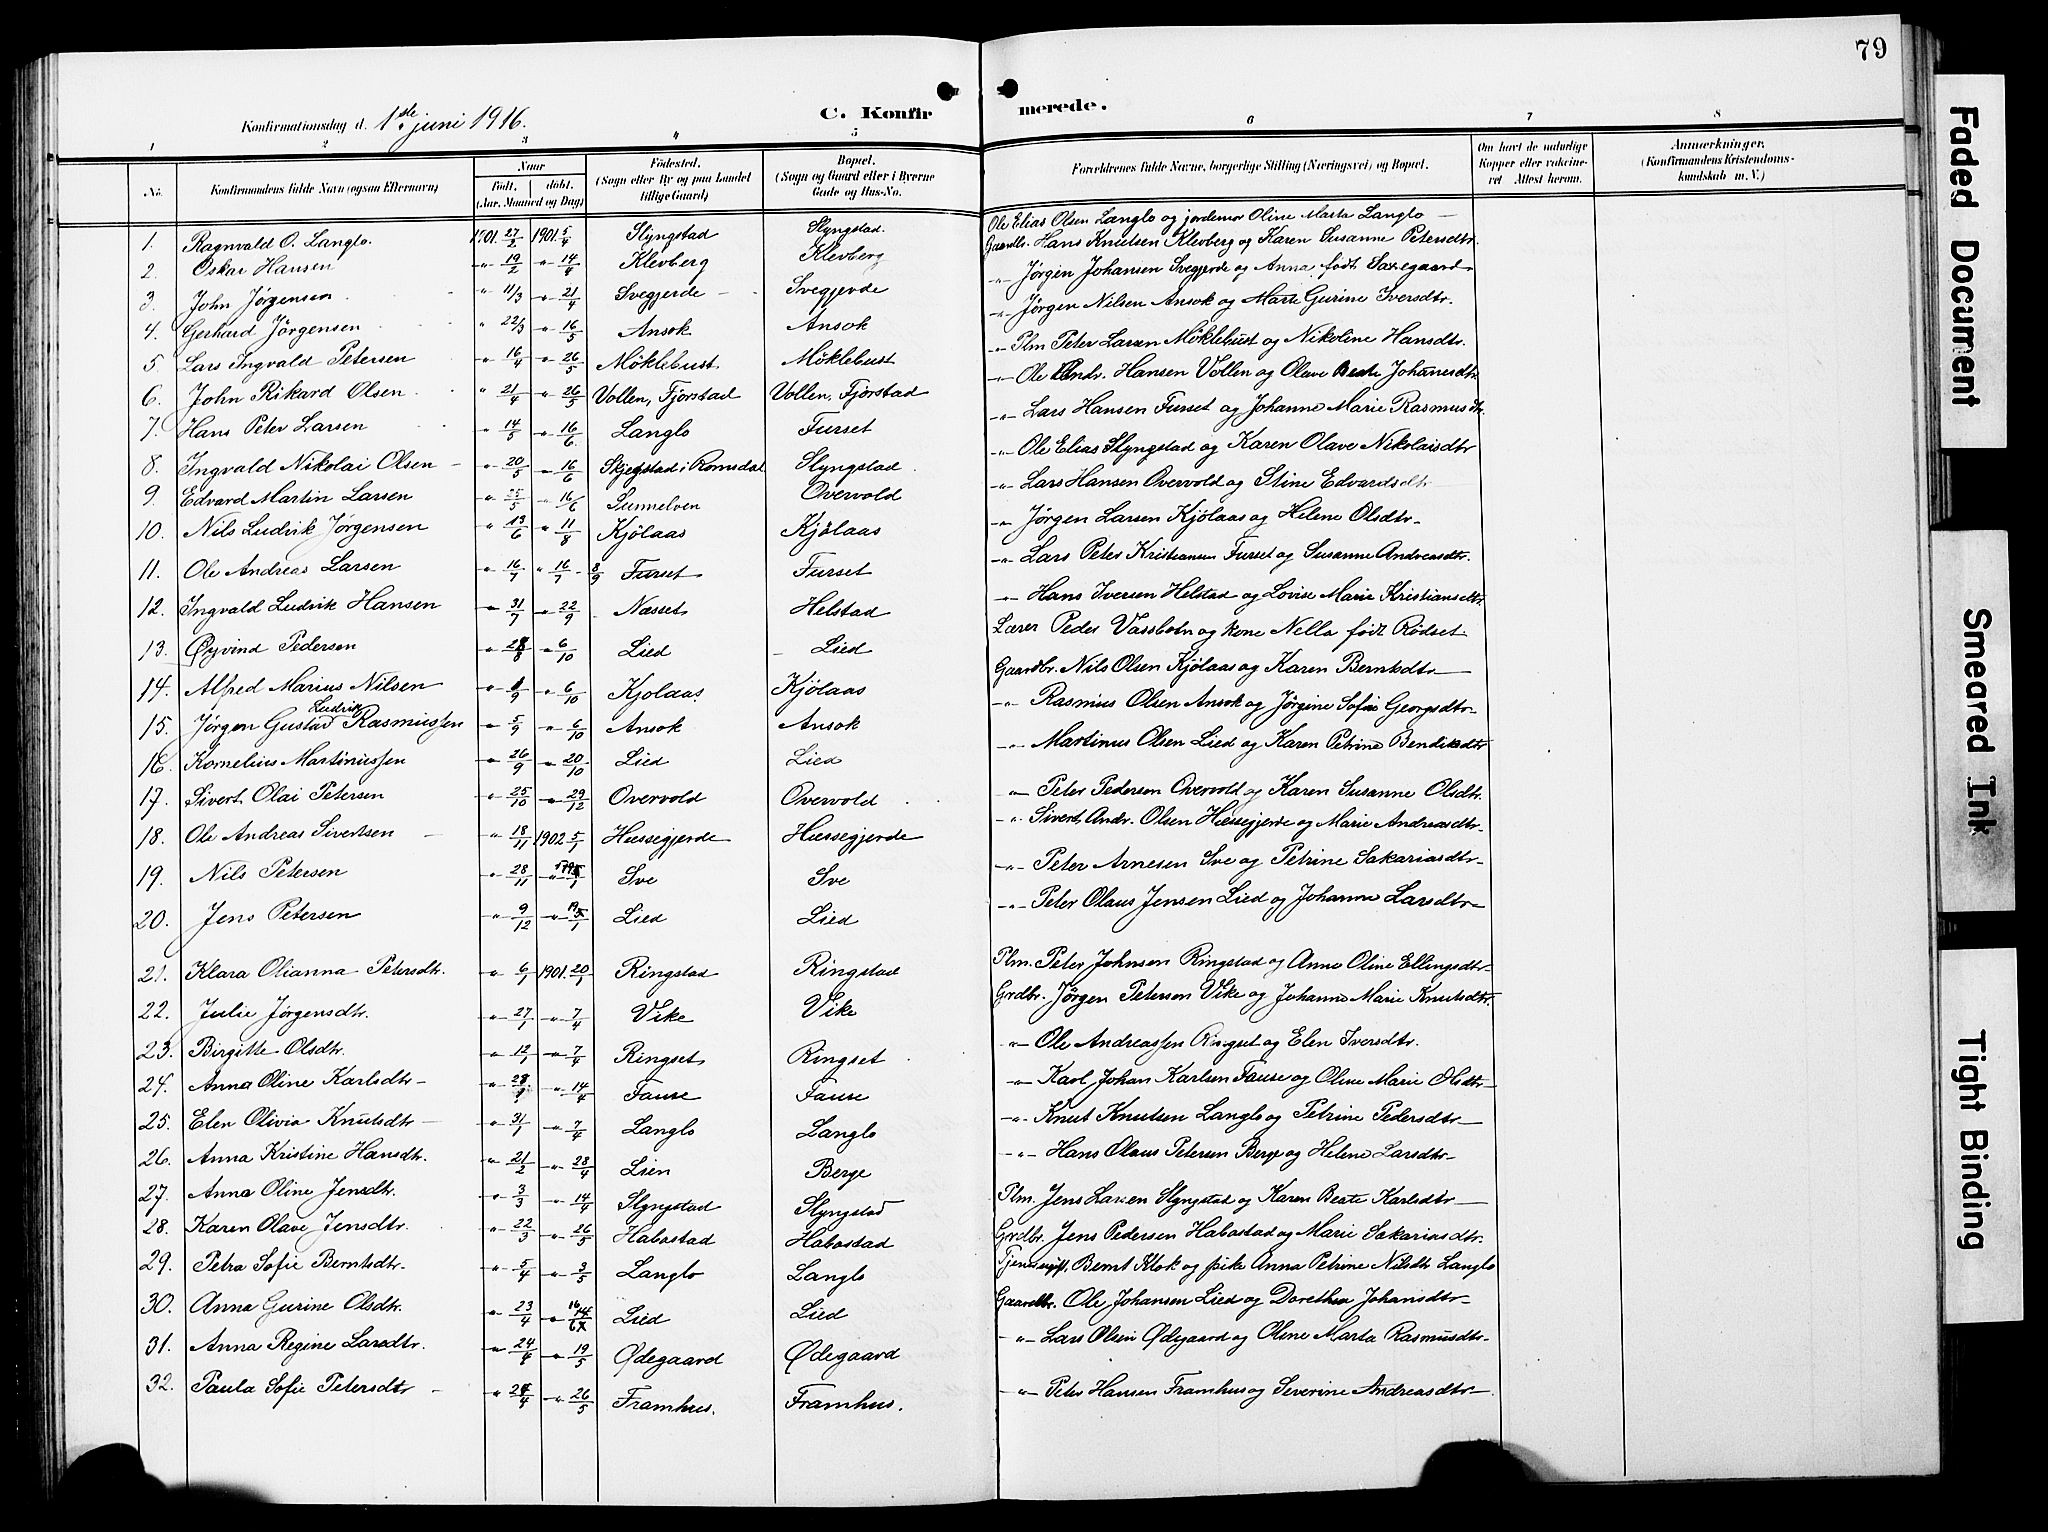 79
Konfirmationsdag d. 1ste juni 1916.
C. Konfirmerede.
1 2 3 4 5 6 7 8
No. Konfirmandens fulde Navn (ogsaa Efternavn) Naar Født. døbt. (Aar, Maaned og Dag) Fødested. (Sogn eller By og paa Landet tillige Gaard) Bopæl. (Sogn og Gaard eller i Byerne Gade og Hus-No. Forældrenes fulde Navne, borgerlige Stilling (Næringsvei) og Bopæl. Om havt de naturlige Kopper eller vaccineret Attest herom. Anmærkninger. (Konfirmandens Kristendomskundskab m. V.)
1. Ragnvald O. Langlo. 1901 27/2 1901 5/4 Slyngstad Slyngstad. Ole Elias Olsen Langlo og jordemor Oline Marta Langlo
2. Oskar Hansen " 19/2 " 14/4 Klevberg Klevberg Gaardbr. Hans Knutsen Klevberg og Karen Susanne Petersdtr.
3. John Jørgensen " 11/3 " 21/4 Svegjerde Svegjerde " Jørgen Johansen Svegjerde og Anna født Saxegaard
4. Gerhard Jørgensen " 22/3 " 16/5 Ansok Ansok " Jørgen Nilsen Ansok og Marte Gurine Iversdtr.
5. Lars Ingvald Petersen " 16/4 " 26/5 Möklebust Möklebust " Plm Peter Larsen Möklebust og Nikoline Hansdtr.
6. John Rikard Olsen " 21/4 " 26/5 Vollen, Fjörstad Vollen, Fjörstad " Ole Andr. Hansen Vollen og Olave Beate Johannesdtr
7. Hans Peter Larsen " 14/5 " 16/6 Langlo Furset " Lars Hansen Furset og Johanne Marie Rasmusdtr.
8. Ingvald Nikolai Olsen " 20/5 " 16/6 Skjegstad i Romsdal Slyngstad " Ole Elias Slyngstad og Karen Olave Nikolaisdtr
9. Edvard Martin Larsen " 25/5 " 16/6 Sunnelven Overvold " Lars Hansen Overvold og Stine Edvardsdtr
10. Nils Ludvik Jørgensen " 13/6 " 11/8 Kjölaas Kjölaas " Jørgen Larsen Kjölaas og Helene Olsdtr
11. Ole Andreas Larsen " 16/7 " 16/7 - 8/9 Furset Furset " Lars Peter Kristiansen Furset og Susanne Andreasdtr.
12. Ingvald Ludvik Hansen " 31/7 " 22/9 Næsset Helstad " Hans Iversen Helstad og Lovise Marie Kristiansdtr.
13. Øyvind Pedersen " 28/8 " 6/10 Lied Lied Lærer Peder Vassbotn og kone Nella født Rödset
14. Alfred Marius Nilsen " 1/9 " 6/10 Kjölaas Kjölaas Gaardbr. Nils Olsen Kjölaas og Karen Berntsdtr
15. Jørgen Gustav Ludvik Rasmussen " 5/9 " 6/10 Ansok Ansok " Rasmus Olsen Ansok og Jørgine Sofie Georgsdtr
16. Kornelius Martinussen " 26/9 " 20/10 Lied Lied " Martinus Olsen Lied og Karen Petrine Bendiksdtr
17. Sivert Olai Petersen " 25/10 " 29/12 Overvold Overvold " Peter Pedersen Overvold og Karen Susanne Olsdtr.
18. Ole Andreas Sivertsen " 18/11 1902 5/1 Hæssegjerde Hæssegjerde " Sivert Andr. Olsen Hæssegjerde og Marie Andreasdtr
19. Nils Petersen " 28/11 " Sve Sve " Peter Arnesen Sve og Petrine Sakariasdtr
20. Jens Petersen " 9/12 " Lied Lied " Peter Olaus Jensen Lied og Johanne Larsdtr
21. Klara Olianna Petersdtr. " 6/1 1901. 20/1 Ringstad Ringstad Plm. Peter Johnsen Ringstad og Anne Oline Ellingsdtr
22. Julie Jørgensdtr. " 27/1 " 7/4 Vike Vike Grdbr. Jørgen Petersen Vike og Johanne Marie Knutsdtr.
23. Birgitte Olsdtr. " 12/1 " 7/4 Ringset Ringset " Ole Andreassen Ringset og Elen Iversdtr.
24. Anna Oline Karlsdtr " " 14/4 Fause Fause " Karl Johan Karlsen Fause og Oline Marie Olsdtr
25. Elen Olivia Knutsdtr " 31/1 " 7/4 Langlo Langlo " Knut Knutsen Langlo og Petrine Pedersdtr
26. Anna Kristine Hansdtr. " 21/2 " 28/4 Lien Berge " Hans Olaus Petersen Berge og Helene Larsdtr
27. Anna Oline Jensdtr. " 3/3 " 14/4 Slyngstad Slyngstad Plm. Jens Larsen Slyngstad og Karen Beate Karlsdtr
28. Karen Olave Jensdtr. " 22/3 " 26/5 Habostad Habostad Grdbr. Jens Pedersen Habostad og Marie Sakariasdtr.
29. Petra Sofie Berntsdtr. " 5/4 " 3/5 Langlo Langlo Bernt Klok og pike Anna Petrine Nilsdtr Langlo
30. Anna Gurine Olsdtr. " 23/4 " Lied Lied Gaardbr. Ole Johansen Lied og Dorethea Johansdtr
31. Anna Regine Larsdtr. " 24/4 " 19/5 Ødegaard Ødegaard " Lars Olsen Ødegaard og Oline Marta Rasmusdtr
32. Paula Sofie Petersdtr " 24/4 " 26/5 Framhus. Framhus. " Peter Hansen Framhus og Severine Andreasdtr
Faded Document
Smeared Ink
Tight Binding